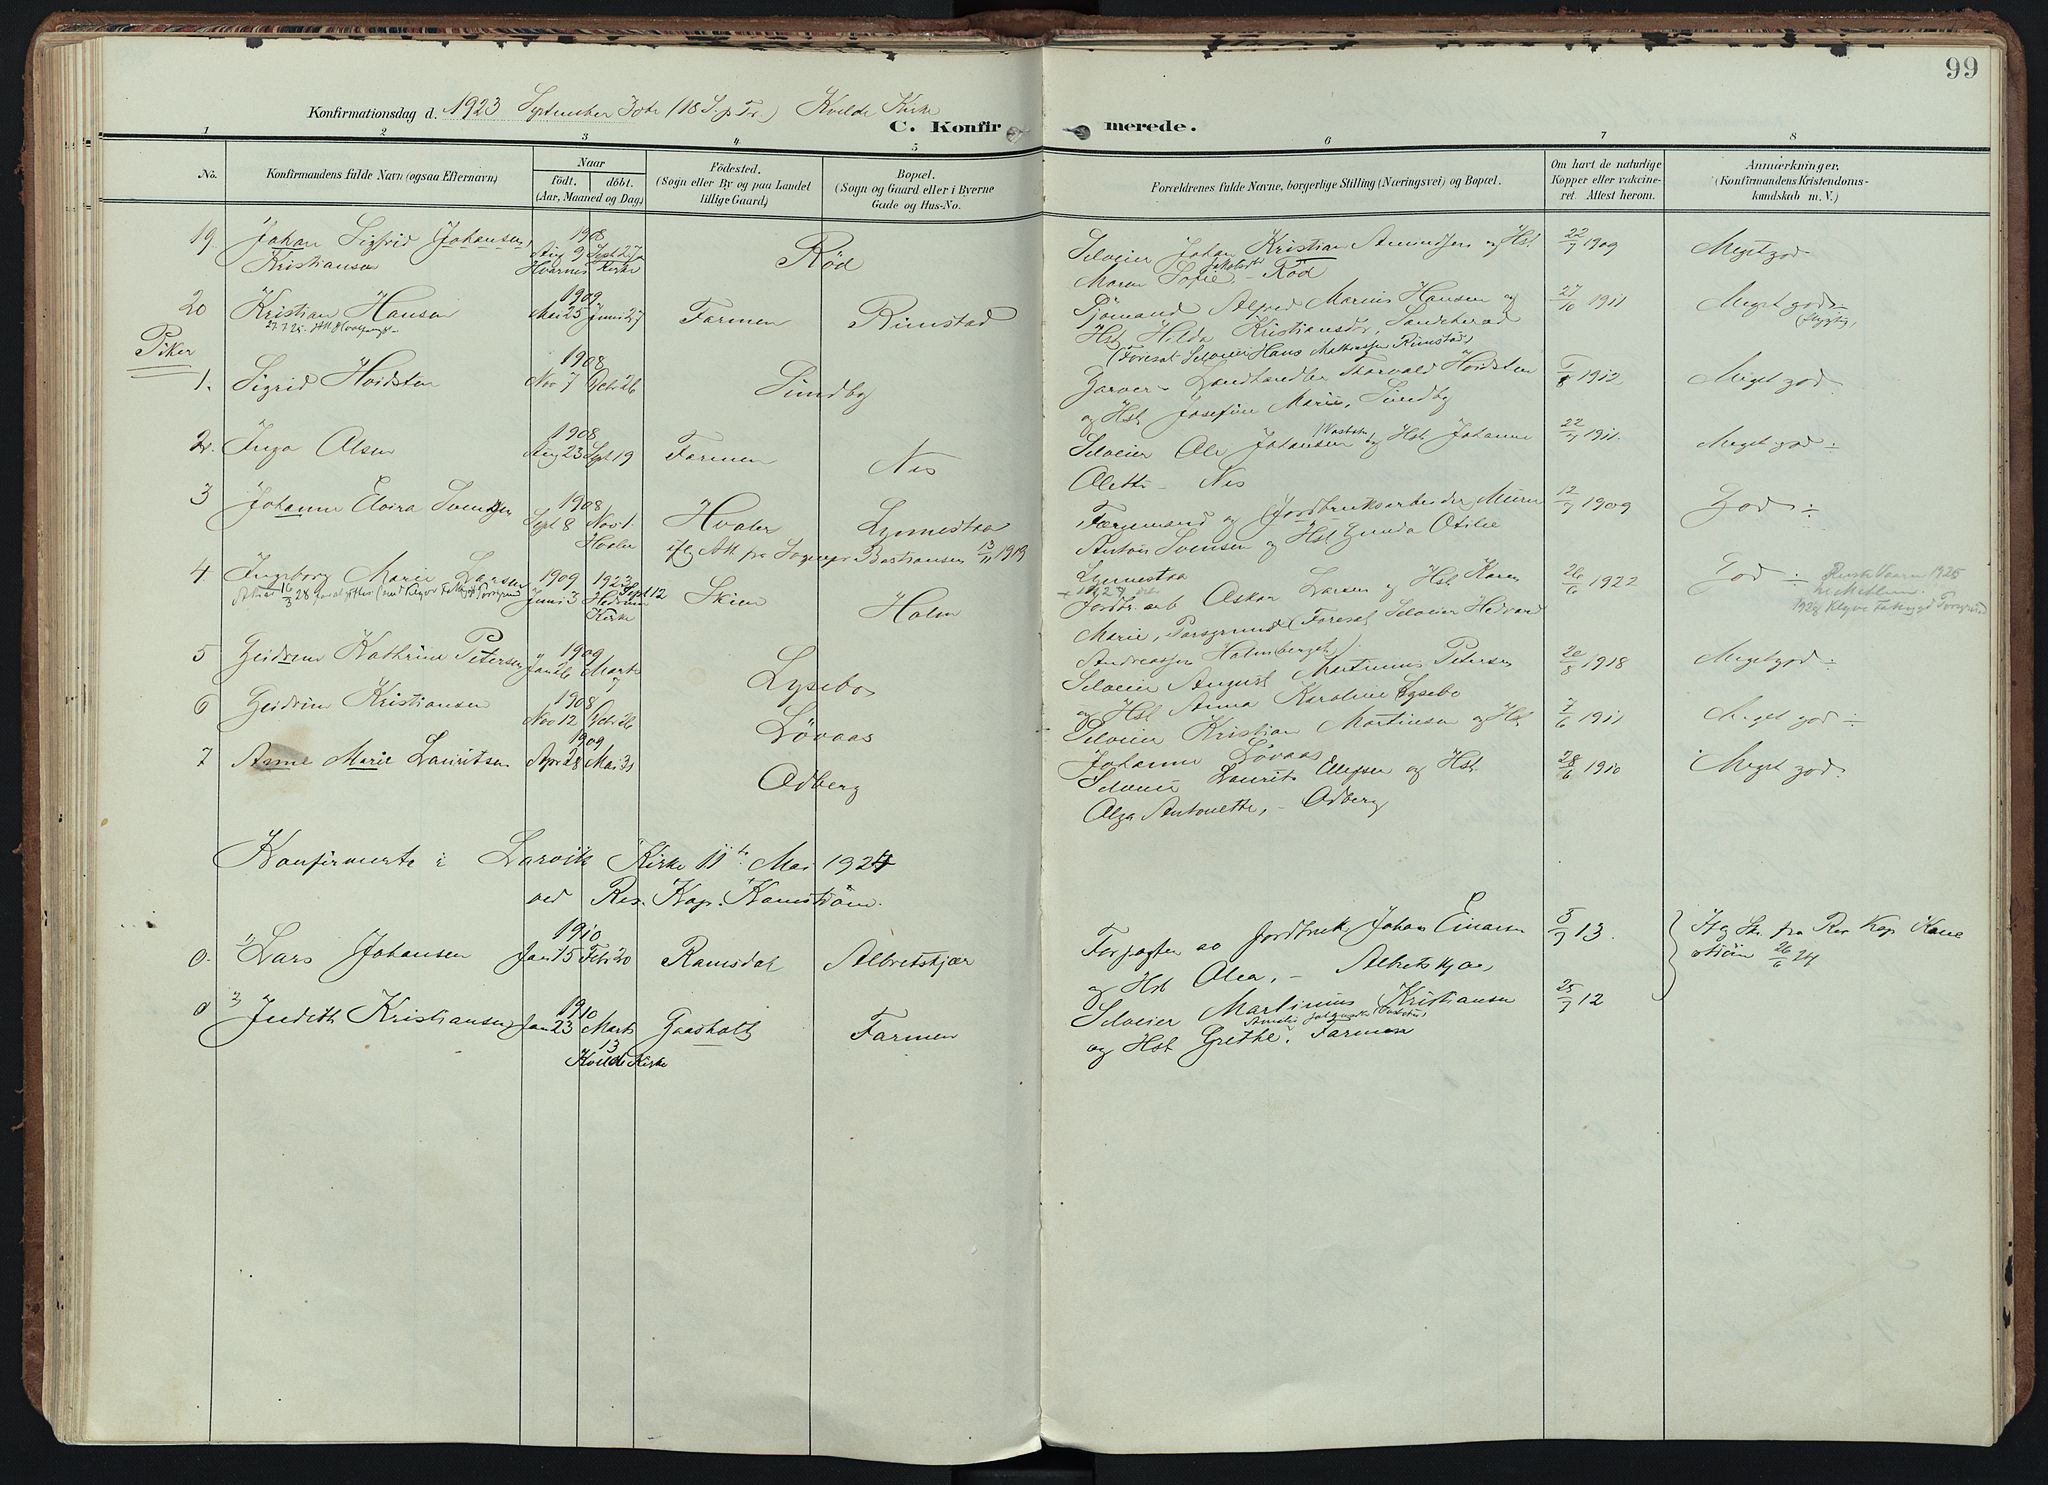 99
Konfirmationsdag d. 1923 September 30te (18 S. p. Tr.) Kvelde Kirke
C. Konfirmerede.
1 2 3 4 5 6 7 8
No.
Konfirmandens fulde Navn (ogsaa Efternavn)
Naar
födt. döbt.
(Aar, Maaned og Dag)
Födested.
(Sogn eller By og paa Landet tillige Gaard)
Bopæl.
(Sogn og Gaard eller i Byerne Gade og Hus-No.
Forældrenes fulde Navne, borgerlige Stilling (Næringsvei) og Bopæl.
Om havt de naturlige Kopper eller vakcineret. Attest herom.
Anmærkninger.
(Konfirmandens Kristendomskundskab m. V.)
19. Johan Sigfrid Johansen 1908 Selveier Johan Kristian Amundsen og Hst 22/7 1909 Meget god
Kristiansen Aug 9 Sept 27 Rød Maren Sofie Jakobsdtr - Rød
Hvarnes Kirke
20 Kristian Hansen 1909 Mai 25 Juni 27 Farmen Rimstad Alfred Marius Hansen og 27/10 1911 Meget god
Hst Hilda Kristiansdtr, Sandeherad
(Foresat Selveier Hans Mathiassen Rimstad)
Piker
1. Sigrid Hvidsten 1908 Nov 7 Dcbr 26 Sundby Garver - Landhandler Thorvald Hvidsten 1/8 1912 Meget god
og Hst Josefine Marie, Sundby
2. Inga Olsen 1908 Aug 23 Sept 19 Farmen Nes Selveier Ole Johansen og Hst Johanne 22/7 1911. Meget god ÷
Olette - Nes
3 Johanne Elvira Svendsen 1908 Sept 8 Nov 1. Hvaler Lynnestaa Færgemand og Jordbruksarbeider 12/7 1909 God ÷
Hvaler iflg Att fra Sognepr Bastiansen 13/11 1919 Anton Svensen og Hst Gunda Otilie
Lynnestaa
4 Ingeborg Marie Larsen 1909 1923 Sept 12 Skien Holm Jordbr. arb Oskar Larsen og Hst Karen 26/6 1922 God ÷
Juni 3 Hedrum Kirke Marie, Porsgrund (Foresat Selveier Hedvard
Andreassen Holmberget)
5 Gudrun Kathrine Petersen 1909 Jan 26 Marts 7 Lysebo Selveier August Martinius Petersen 20/8 1918 Meget god ÷
og Hst Anna Karoline Lysebo
6 Gudrun Kristiansen 1908 Nov 12 Dcbr 26 Løvaas Selveier Kristian Martinsen og Hst 7/6 1911 Meget god ÷
Johanne Løvaas
7 Anne Marie Lauritsen 1909 Apr 28 Mai 31 Odberg Selveier Laurits Ellefsen og Hst 28/6 1910 Meget god.
Olga Antonette, - Odberg
Konfirmerte i Larvik Kirke 11te Mai 1924
ved Res. Kap. Kamstrøm.
0. 1) Lars Johansen 1910 Jan 15 Febr 20 Ramsdal Albretskjær Forpagter av Jordbruk Johan Einarsen 5/7 13.
og Hst Olea, - Albretskjær
0 3 Judith Kristiansen 1910 Jan 23 Marts 13 Gaasholt Farmen Selveier Martinius Kristiansen 25/7 12
Kvelde Kirke og Hst Grethe. Farmen
Iflg Skr. fra Res Kap Kamstrøm 26/6 24